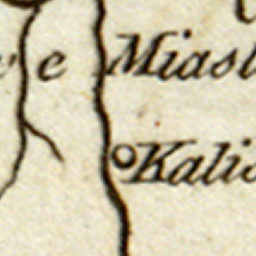 e
Miast
Kalis